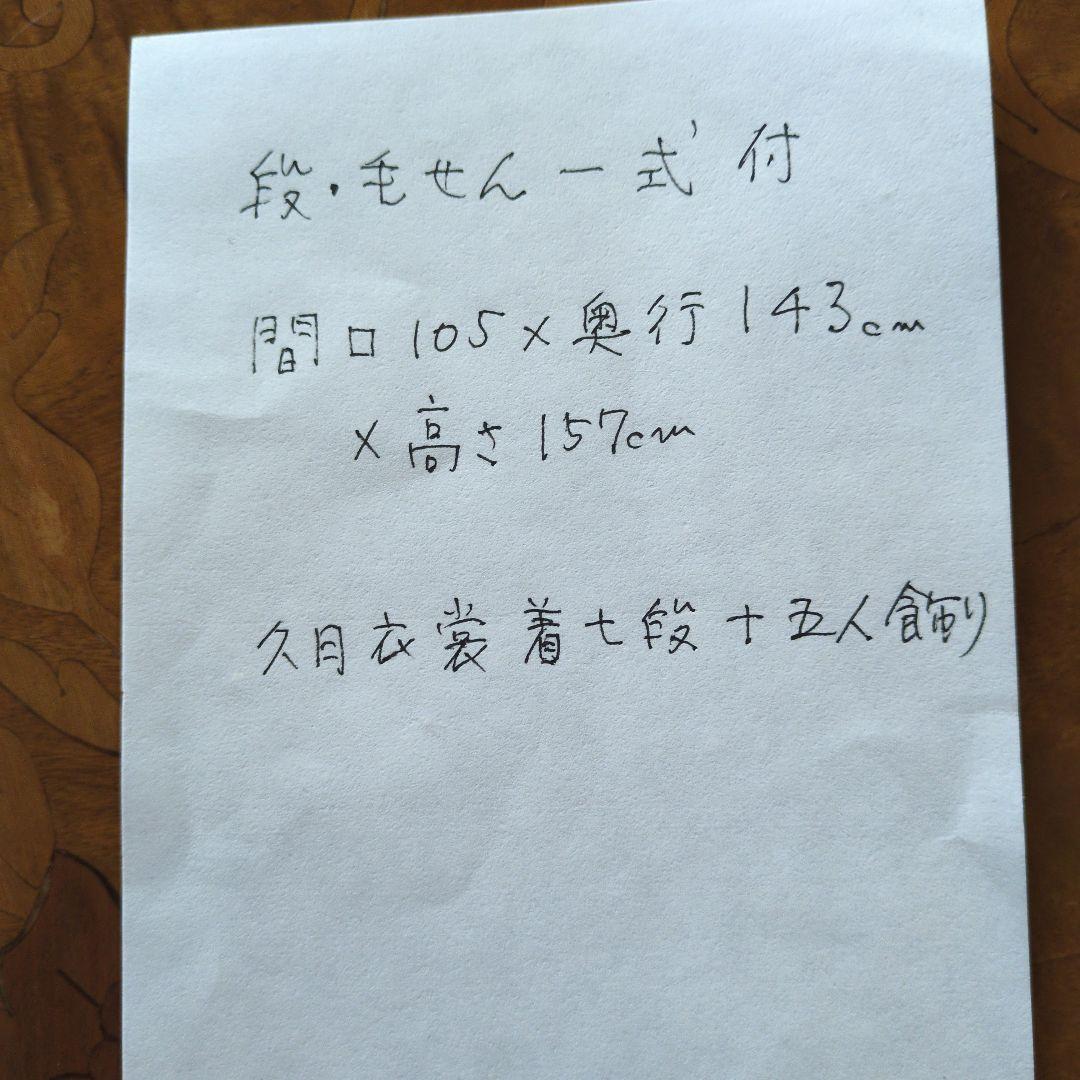 段・毛せん一式付
間口105×奥行143cm
×高さ157cm
久月衣裳着七段十五人飾り